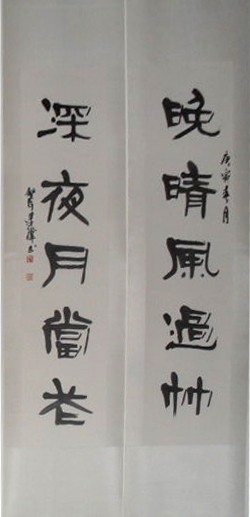 晚晴風過竹
庚寅
深夜月當花